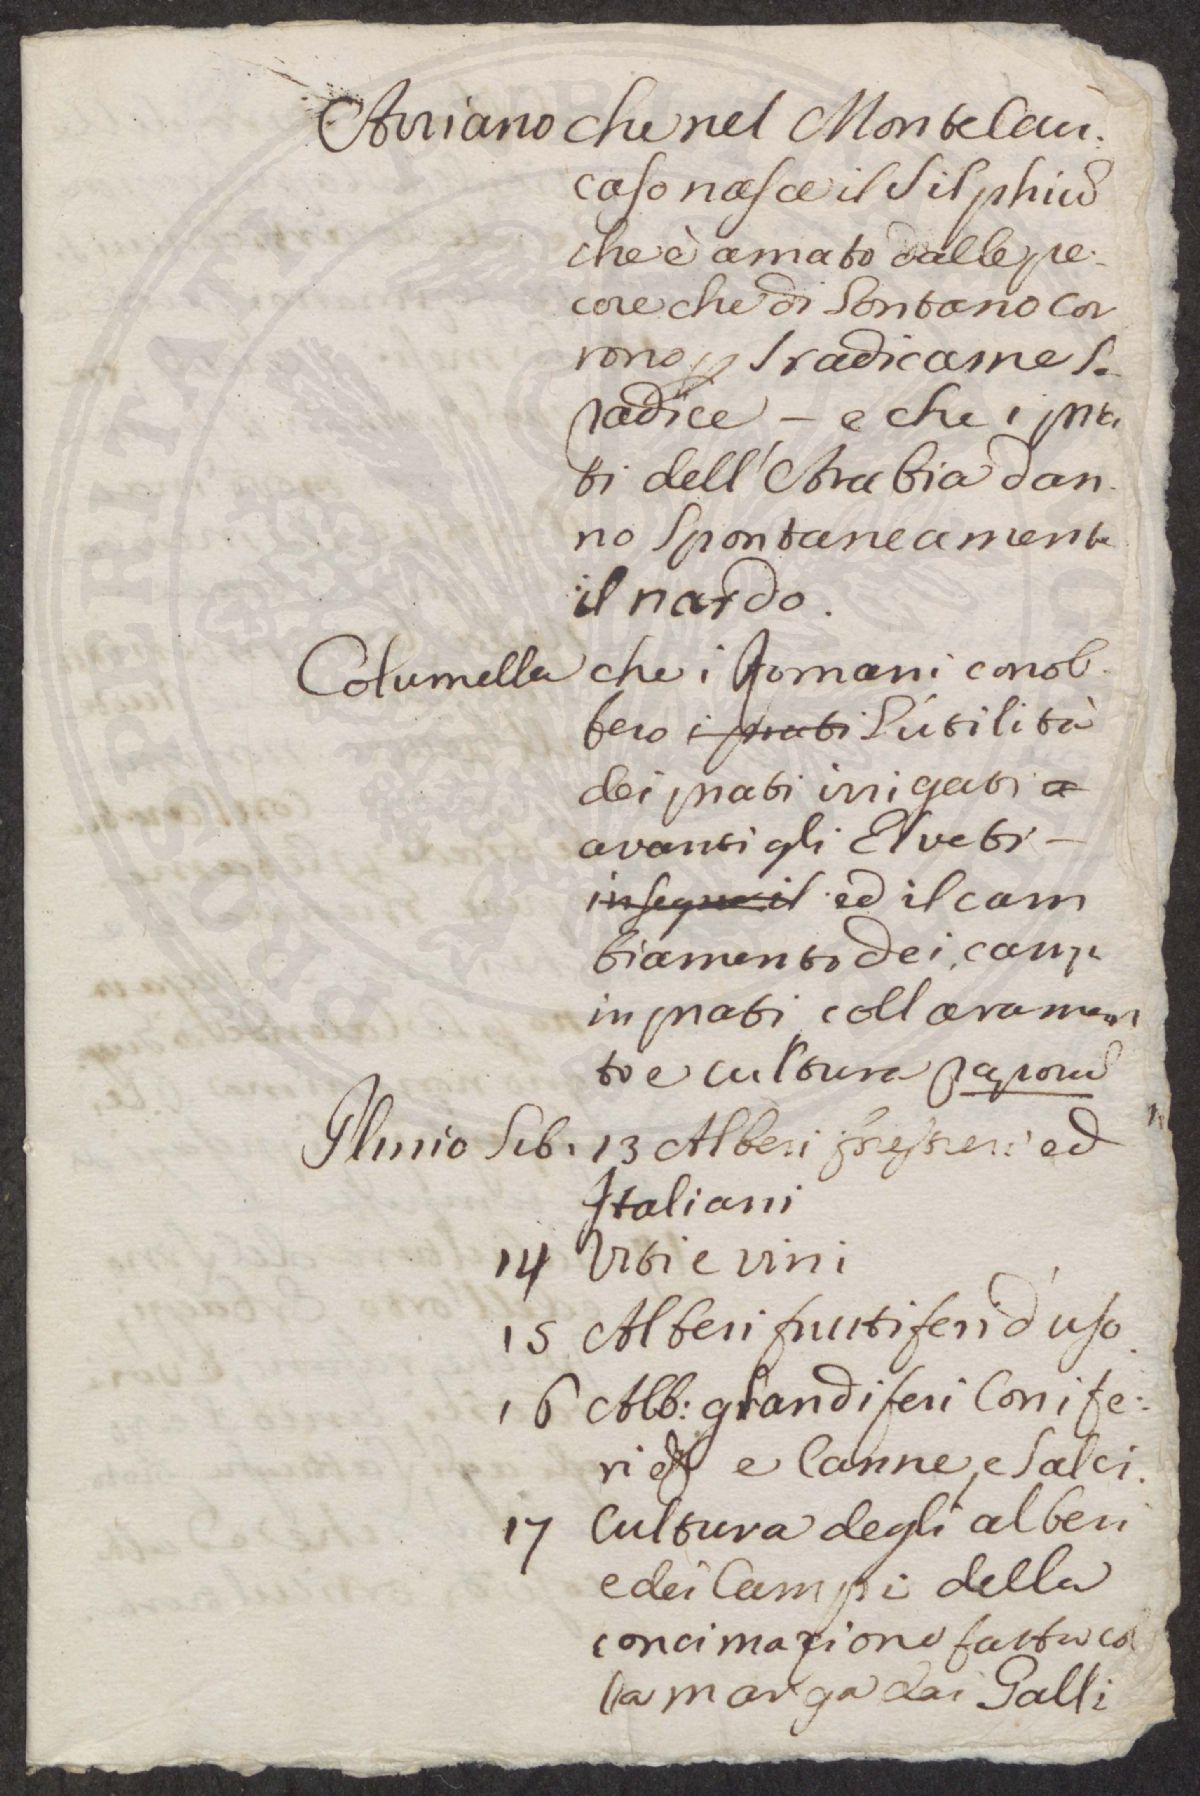 Arriano che nel Monte Cau:
caso nasce il Silphio
che è amato dalle pe-
core che di lontano cor
rono p sradicarne la
radice – e che i pra
ti dell'Arabia dan
no spontaneamente
il nardo.
Columella che i Romani conob-
bero i prati l'utilità
dei prati irrigati a
avanti gli Elveti –
insegna il ed il cam
biamento dei campi
in prati coll aramen
to e cultura
Plinio Lib. 13 Alberi forestieri ed
Italiani
14 Viti e vini
15 Alberi fruttiferi d'uso
16 Alb: glandiferi Conife:
ri e Canne, e Salci.
17 Cultura degli alberi
e dei Campi della
concimazione fatta col
la marga dai Galli
PROSPERITATI PUBLICAE AUGENDAE